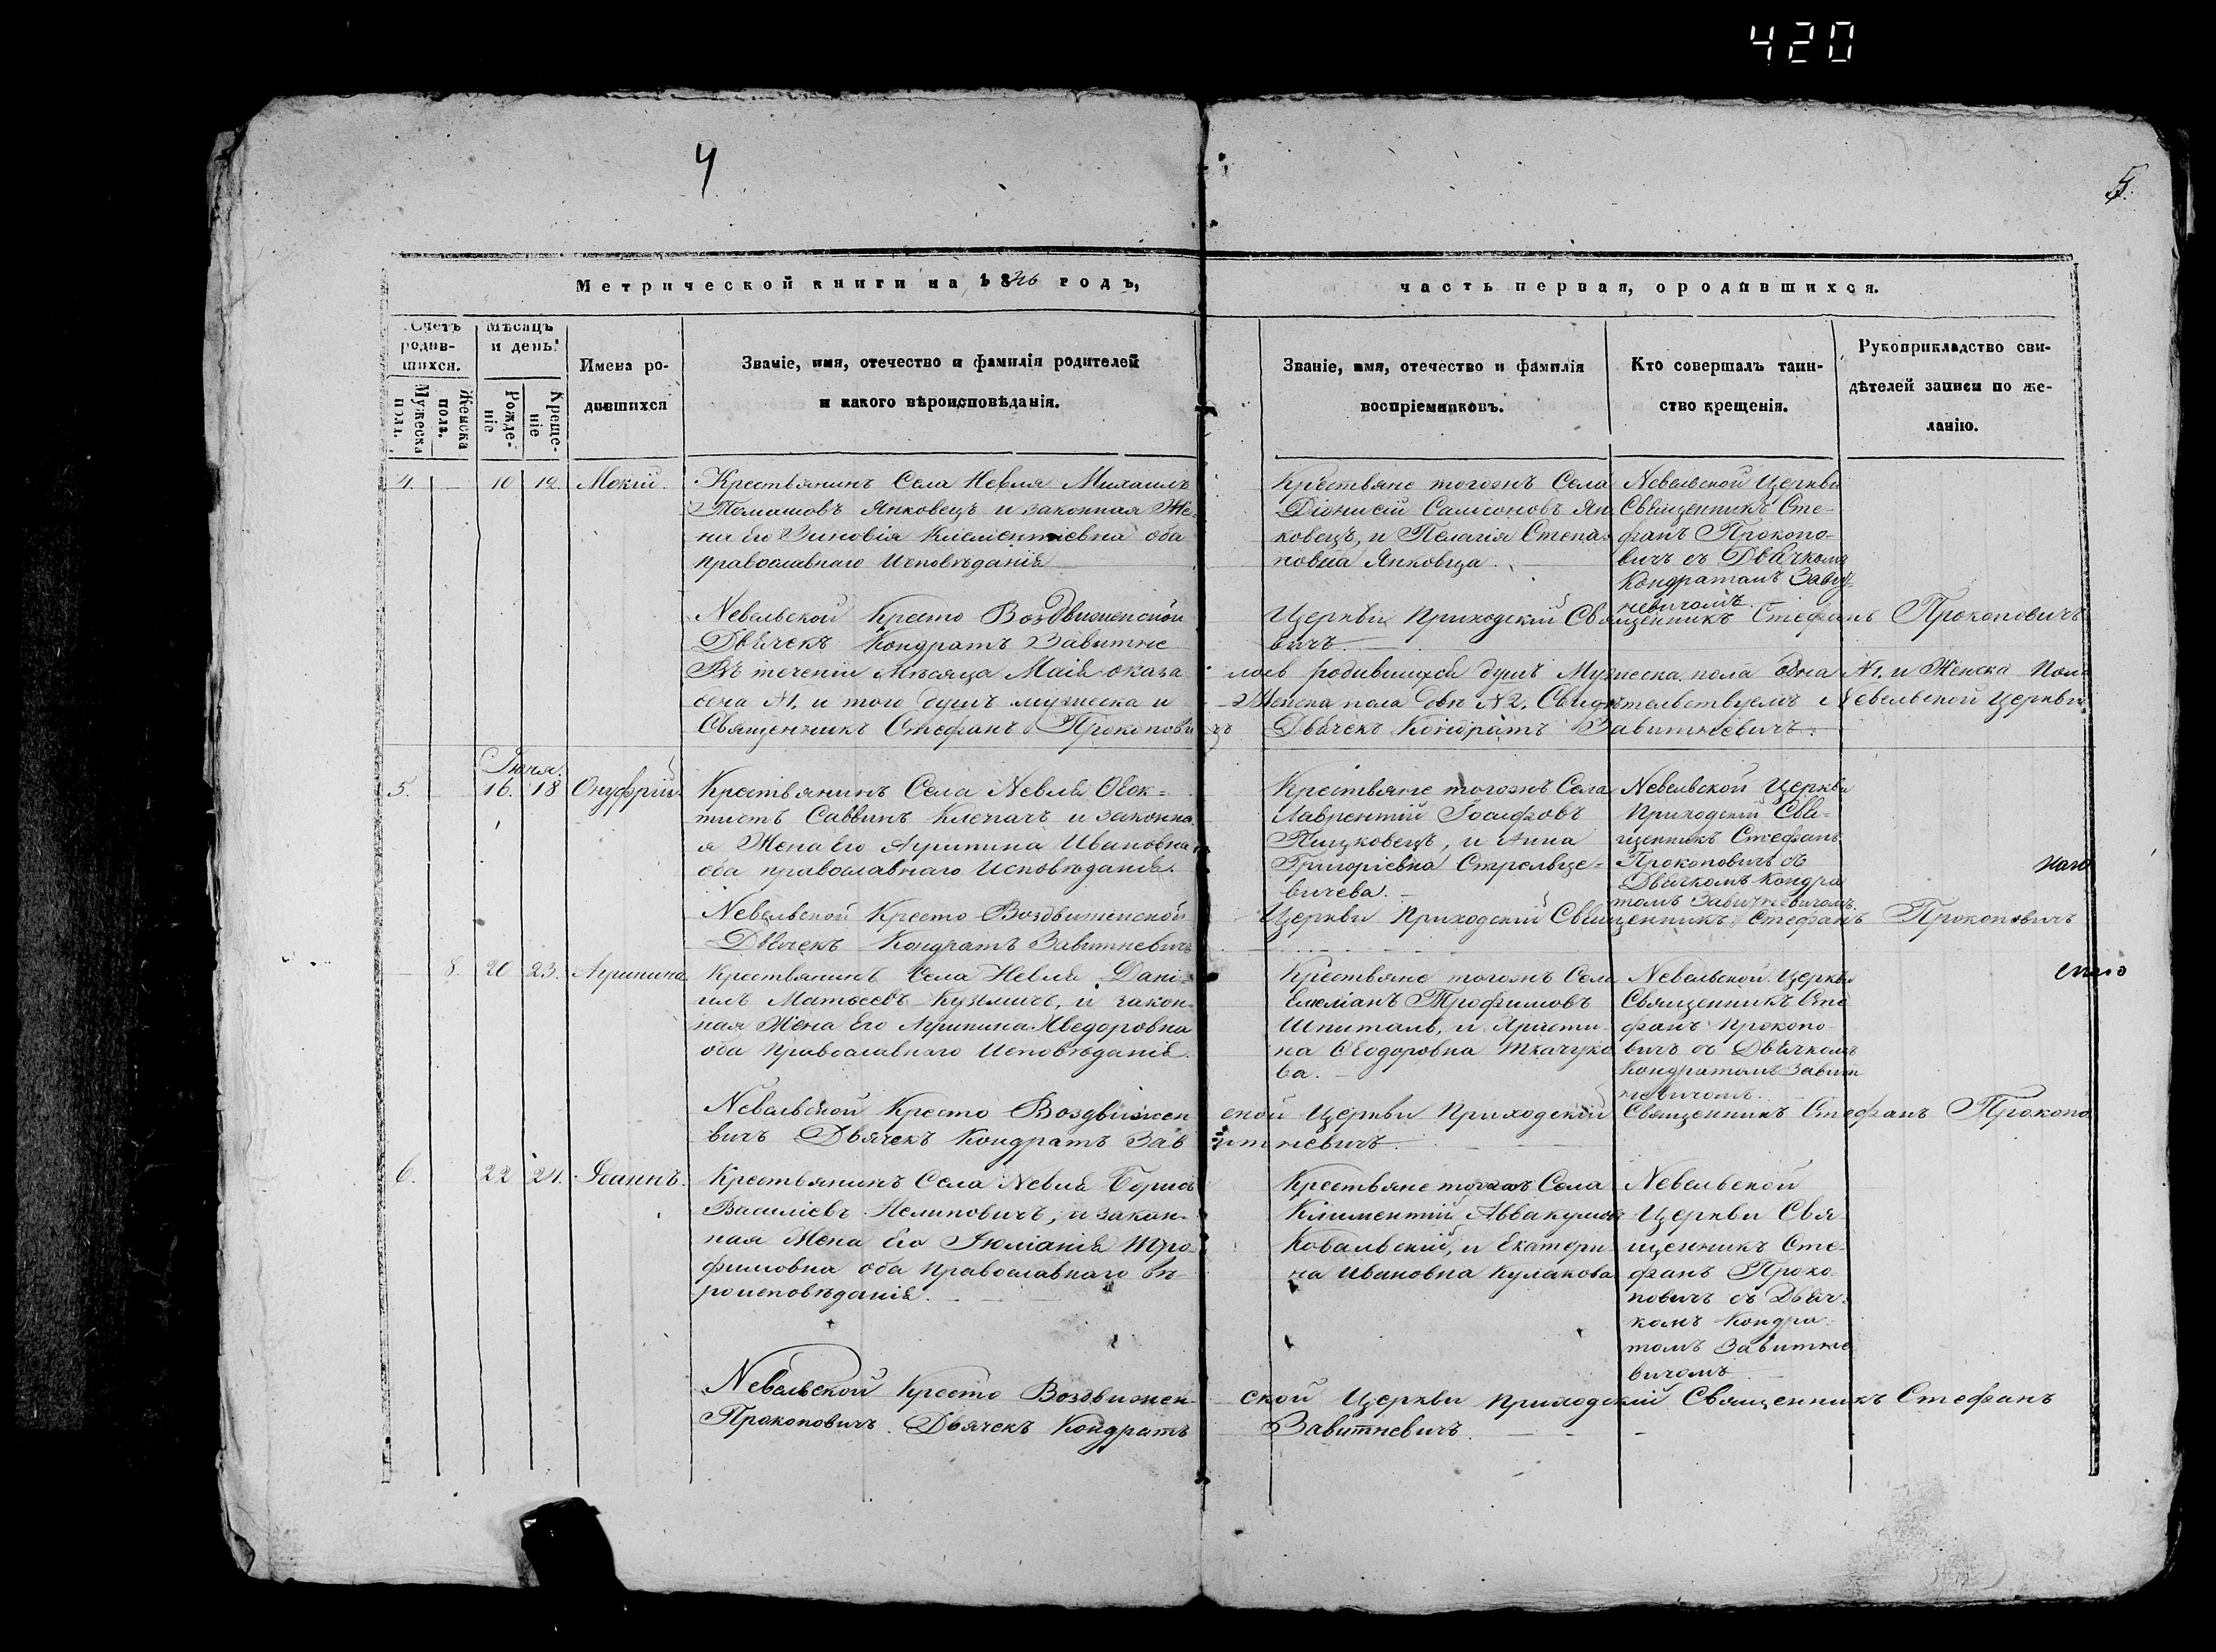 420
4
5.
Метрической книги на 1846 годъ,
часть первая, ородившихся.
Счетъ родив-шихся.
Мужеска пола.
Женска пола.
Мѣсяцъ и день.
Рожде-ніе
Креще-ніе
Имена ро-
дившихся
Званіе, имя, отечество и фамилія родителей
и какого вѣроисповѣданія.
Званіе, имя, отечество и фамилія
воспріемниковъ.
Кто совершалъ таин-
ство крещенія.
Рукоприкладство сви-
дѣтелей записи по же-
ланію.
4. — 10 12. Мокій.
Крестьянинъ Села Невля Михаилъ
Томашовъ Янковецъ и законная Же-
на Его Зиновія Климентіевна оба
православнаго Исповѣданія
Крестьяне тогожъ Села
Діонисій Самсоновъ Ян-
ковецъ, и Пелагія Степа-
новна Янковца.
Невельской Церкви
Священникъ Сте-
фанъ Прокопо-
вичъ съ Дьячкомъ
Кондратомъ Завит-
невичомъ.
Невельской Кресто Воздвиженской Церкви Приходскій Священникъ Стефанъ Прокоповичъ
Дьячекъ Кондратъ Завитне вичъ.
Въ теченіи Мѣсяца Маія оказа лось родившихся душъ Мужеска пола одна №1. и Женска Пола
одна №1, и того душъ мужеска и Женска пола двѣ №2. Свидѣтельствуемъ Невельской Церкви
Священникъ Стефанъ Прокоповичъ Дьячекъ Кондратъ Завитневичъ.
Іюня.
5. 16. 18 Онуфрій.
Крестьянинъ Села Невля Ѳеок-
тистъ Саввинъ Клепачъ и законна
я Жена Его Агрипина Ивановна
оба православнаго Исповѣданія.
Крестьяне тогожъ Села
Лаврентій Іосифовъ
Пицковецъ, и Анна
Григоріевна Стрельце-
вичева.
Невельской Церкви
Приходскій Свя-
щенникъ Стефанъ
Прокоповичъ съ
Дьячкомъ Кондра
томъ Завитневичомъ.
Невельской Кресто Воздвиженской Церкви Приходскій Священникъ Стефанъ Прокоповичъ
Дьячекъ Кондратъ Завитневичъ
— 8. 20 23. Агрипина
Крестьянинъ Села Невля Дані-
илъ Матѳеевъ Кузмичъ, и закон-
ная Жена Его Агрипина Ѳведоровна
оба Православнаго Исповѣданія.
Крестьяне тогожъ Села
Емеліанъ Трофимовъ
Шпиталь, и Христи-
на Ѳеодоровна Ткачуко
ва.
Невельской Церкви
Священникъ Сте
фанъ Прокопо
вичъ съ Дьячкомъ
Кондратомъ Завит
невичомъ.
Невельской Кресто Воздвижен ской Церкви Приходскій Священникъ Стефанъ Прокопо
вичъ Дьячекъ Кондратъ Зав итневичъ.
6. 22 24. Іоаннъ.
Крестьянинъ Села Невля Борисъ
Василіевъ Нелиповичъ, и закон-
ная Жена Его Іюліанія Тро-
фимовна оба Православнаго вѣ-
роисповѣданія.
Крестьяне тогожъ Села
Климентій Аввакумовъ
Ковальскій, и Екатери
на Ивановна Кулакова
Невельской
Церкви Свя-
щенникъ Сте-
фанъ Проко-
повичъ съ Дьяч-
комъ Кондра-
томъ Завитне
вичомъ
Невельской Кресто Воздвижен ской Церкви Приходскій Священникъ Стефанъ
Прокоповичъ. Дьячекъ Кондратъ Завитневичъ.